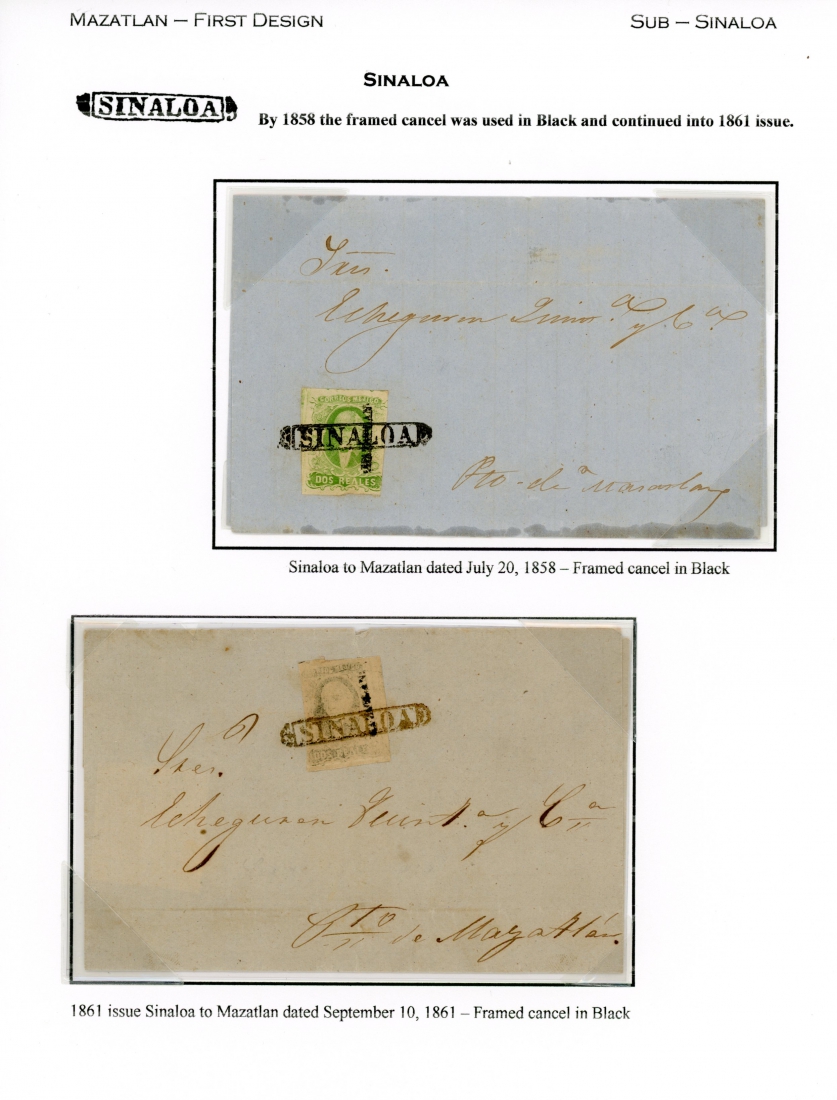 MAZATLAN – FIRST DESIGN
SUB – SINALOA
SINALOA
SINALOA
By 1858 the framed cancel was used in Black and continued into 1861 issue.
Echeguren
y Ca
CORREOS MEJICO
MAZATLAN
SINALOA
DOS REALES
Pto de
Sinaloa to Mazatlan dated July 20, 1858 – Framed cancel in Black
MAZATLAN
SINALOA
DOS REALES
Sres.
Echeguren y Ca
Pto de Mazatlán.
1861 issue Sinaloa to Mazatlan dated September 10, 1861 – Framed cancel in Black